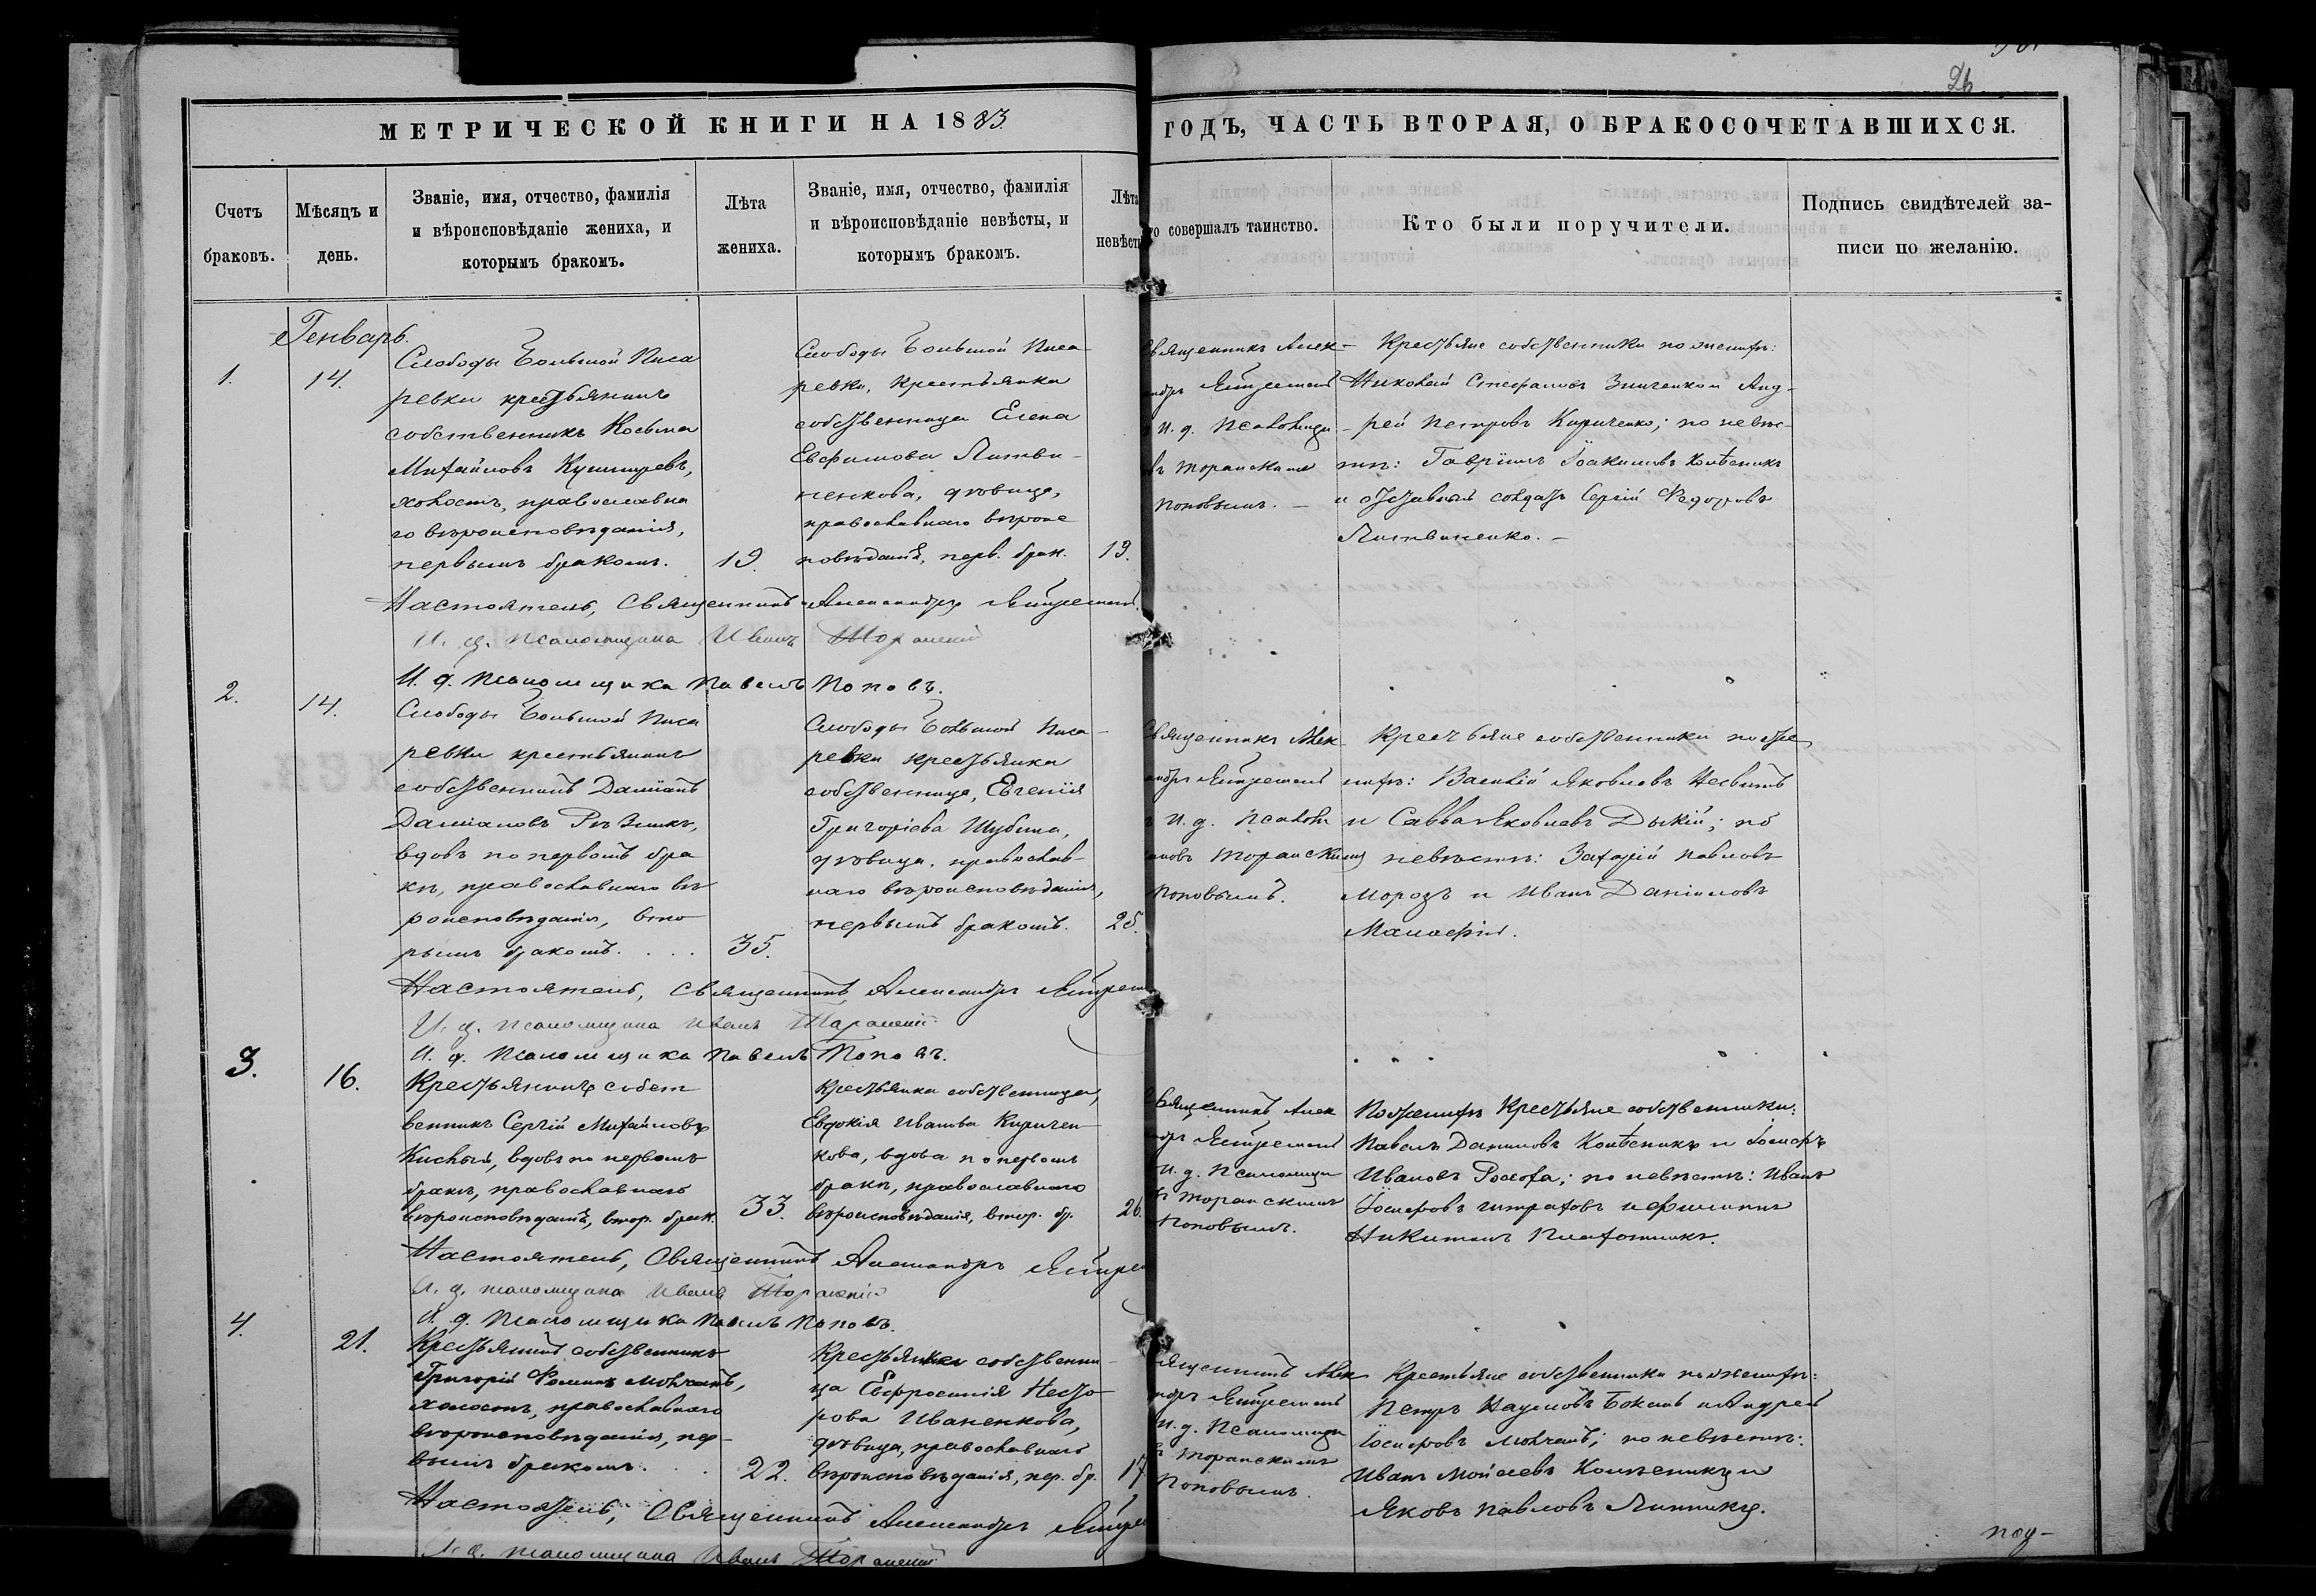 26
МЕТРИЧЕСКОЙ КНИГИ НА 1883
ГОДЪ, ЧАСТЬ ВТОРАЯ, О БРАКОСОЧЕТАВШИХСЯ.
Счетъ браковъ.
Мѣсяцъ и день.
Званіе, имя, отчество, фамилія
и вѣроисповѣданіе жениха, и
которымъ бракомъ.
Лѣта жениха.
Званіе, имя, отчество, фамилія
и вѣроисповѣданіе невѣсты, и
которымъ бракомъ.
Лѣта
невѣст
о совершалъ таинство.
Кто были поручители.
Подпись свидѣтелей за-
писи по желанію.
Генварь.
1.
14.
Слободы Большой Писа
ревки крестьянинъ
собственникъ Косьма
Михайловъ
холостъ, православна
го вѣроисповѣданія,
первымъ бракомъ.
19.
Слободы Большой Писа
ревки, крестьянка
собственница Елена
Евфимова Литви-
ненкова, дѣвица,
православнаго вѣроис
повѣданія, перв. брак.
19.
Священникъ Алек-
и. д. Псаломщи
Поповымъ.
Крестьяне собственники по женихѣ:
Николай Стефановъ Зинченко и Анд-
рей Петровъ Кириченко; по невѣс-
тѣ: Гавріилъ Іоакимовъ Колѣсникъ
и отставной солдатъ Сергій Федоровъ
Литвиненко.
Настоятель, Священникъ Александръ
И. д. псаломщика Иванъ
И. д. псаломщика Павелъ Поповъ.
2.
14.
Слободы Большой Писа
ревки крестьянинъ
собственникъ Даміанъ
Даміановъ Рѣзникъ,
вдовъ по первомъ бра
кѣ, православнаго вѣ
роисповѣданія, вто
рымъ бракомъ.
35.
Слободы Большой Писа-
ревки крестьянка
собственница, Евгенія
Григоріева Шубина,
дѣвица, православ-
наго вѣроисповѣданія,
первымъ бракомъ.
25.
Священникъ Алек-
и. д. Псаломщи
Поповымъ.
Крестьяне собственники по же
нихѣ: Василій Яковлевъ Несвитъ
и Савва Яковлевъ Дикій; по
невѣстѣ: Захарій Павловъ
Морозъ и Иванъ Даніиловъ
Настоятель, Священникъ Александръ
И. д. псаломщика Иванъ
И. д. псаломщика Павелъ Поповъ.
3.
16.
Крестьянинъ собст
венникъ Сергій Михайловъ
Кислый, вдовъ по первомъ
бракѣ, православнаго
вѣроисповѣданія, втор. брак.
33.
Крестьянка собственница,
Евдокія Иванова Киричен
кова, вдова по первомъ
бракѣ, православнаго
вѣроисповѣданія, втор. бр.
26.
Священникъ Алек
и. д. Псаломщи
Поповымъ.
По женихѣ крестьяне собственники:
Павелъ Даниловъ Колѣсникъ и Іосифъ
Ивановъ; по невѣстѣ: Иванъ
Іосифовъ
Никитинъ
Настоятель, Священникъ Александръ
И. д. псаломщика Иванъ
И. д. псаломщика Павелъ Поповъ.
4.
21.
Крестьянинъ собственникъ
Григорій Фоминъ Молчанъ,
холостъ, православнаго
вѣроисповѣданія, пер-
вымъ бракомъ.
22.
Крестьянка собственни-
ца Евфросинія Несто-
рова Иваненкова,
дѣвица, православнаго
вѣроисповѣданія, пер. бр.
17
ященникъ Алек
и. д. Псаломщи
Поповымъ.
Крестьяне собственники по женихѣ:
Петръ Наумовъ и Андрей
Іосифовъ Молчанъ; по невѣстѣ:
Иванъ Мойсеевъ Колѣсникъ и
Яковъ Павловъ
Настоятель, Священникъ Александръ
И. д. псаломщика Иванъ
под-